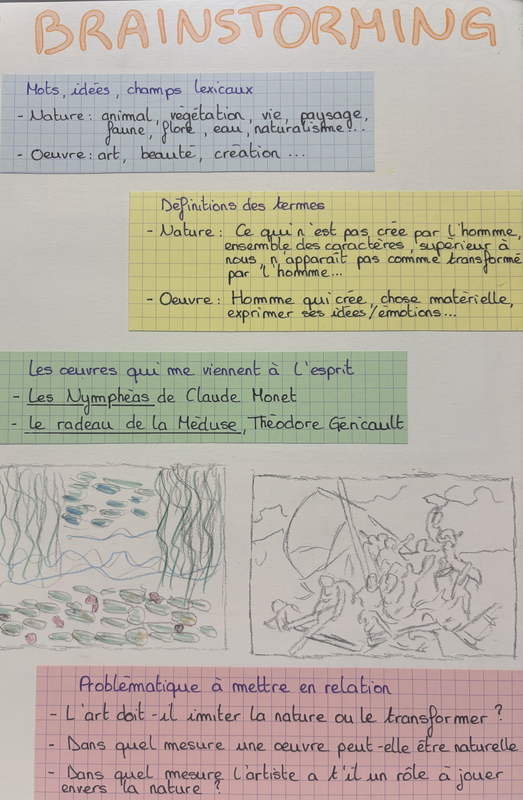 BRAINSTORMING
Mots, idées, champs lexicaux
- Nature : animal, végétation, vie, paysage,
faune, flore, eau, naturalisme...
- Oeuvre : art, beauté, création ...
Définitions des termes
- Nature : Ce qui n'est pas crée par l'homme,
ensemble des caractères, supérieur à
nous, n'apparaît pas comme transformé
par l'homme...
- Oeuvre : Homme qui crée, chose matérielle,
exprimer ses idées/émotions...
Les œuvres qui me viennent à l'esprit
- Les Nymphéas de Claude Monet
- le radeau de la Méduse, Théodore Géricault
Problématique à mettre en relation
- L'art doit-il imiter la nature ou le transformer ?
- Dans quel mesure une oeuvre peut-elle être naturelle
- Dans quel mesure l'artiste a t'il un rôle à jouer
envers la nature ?